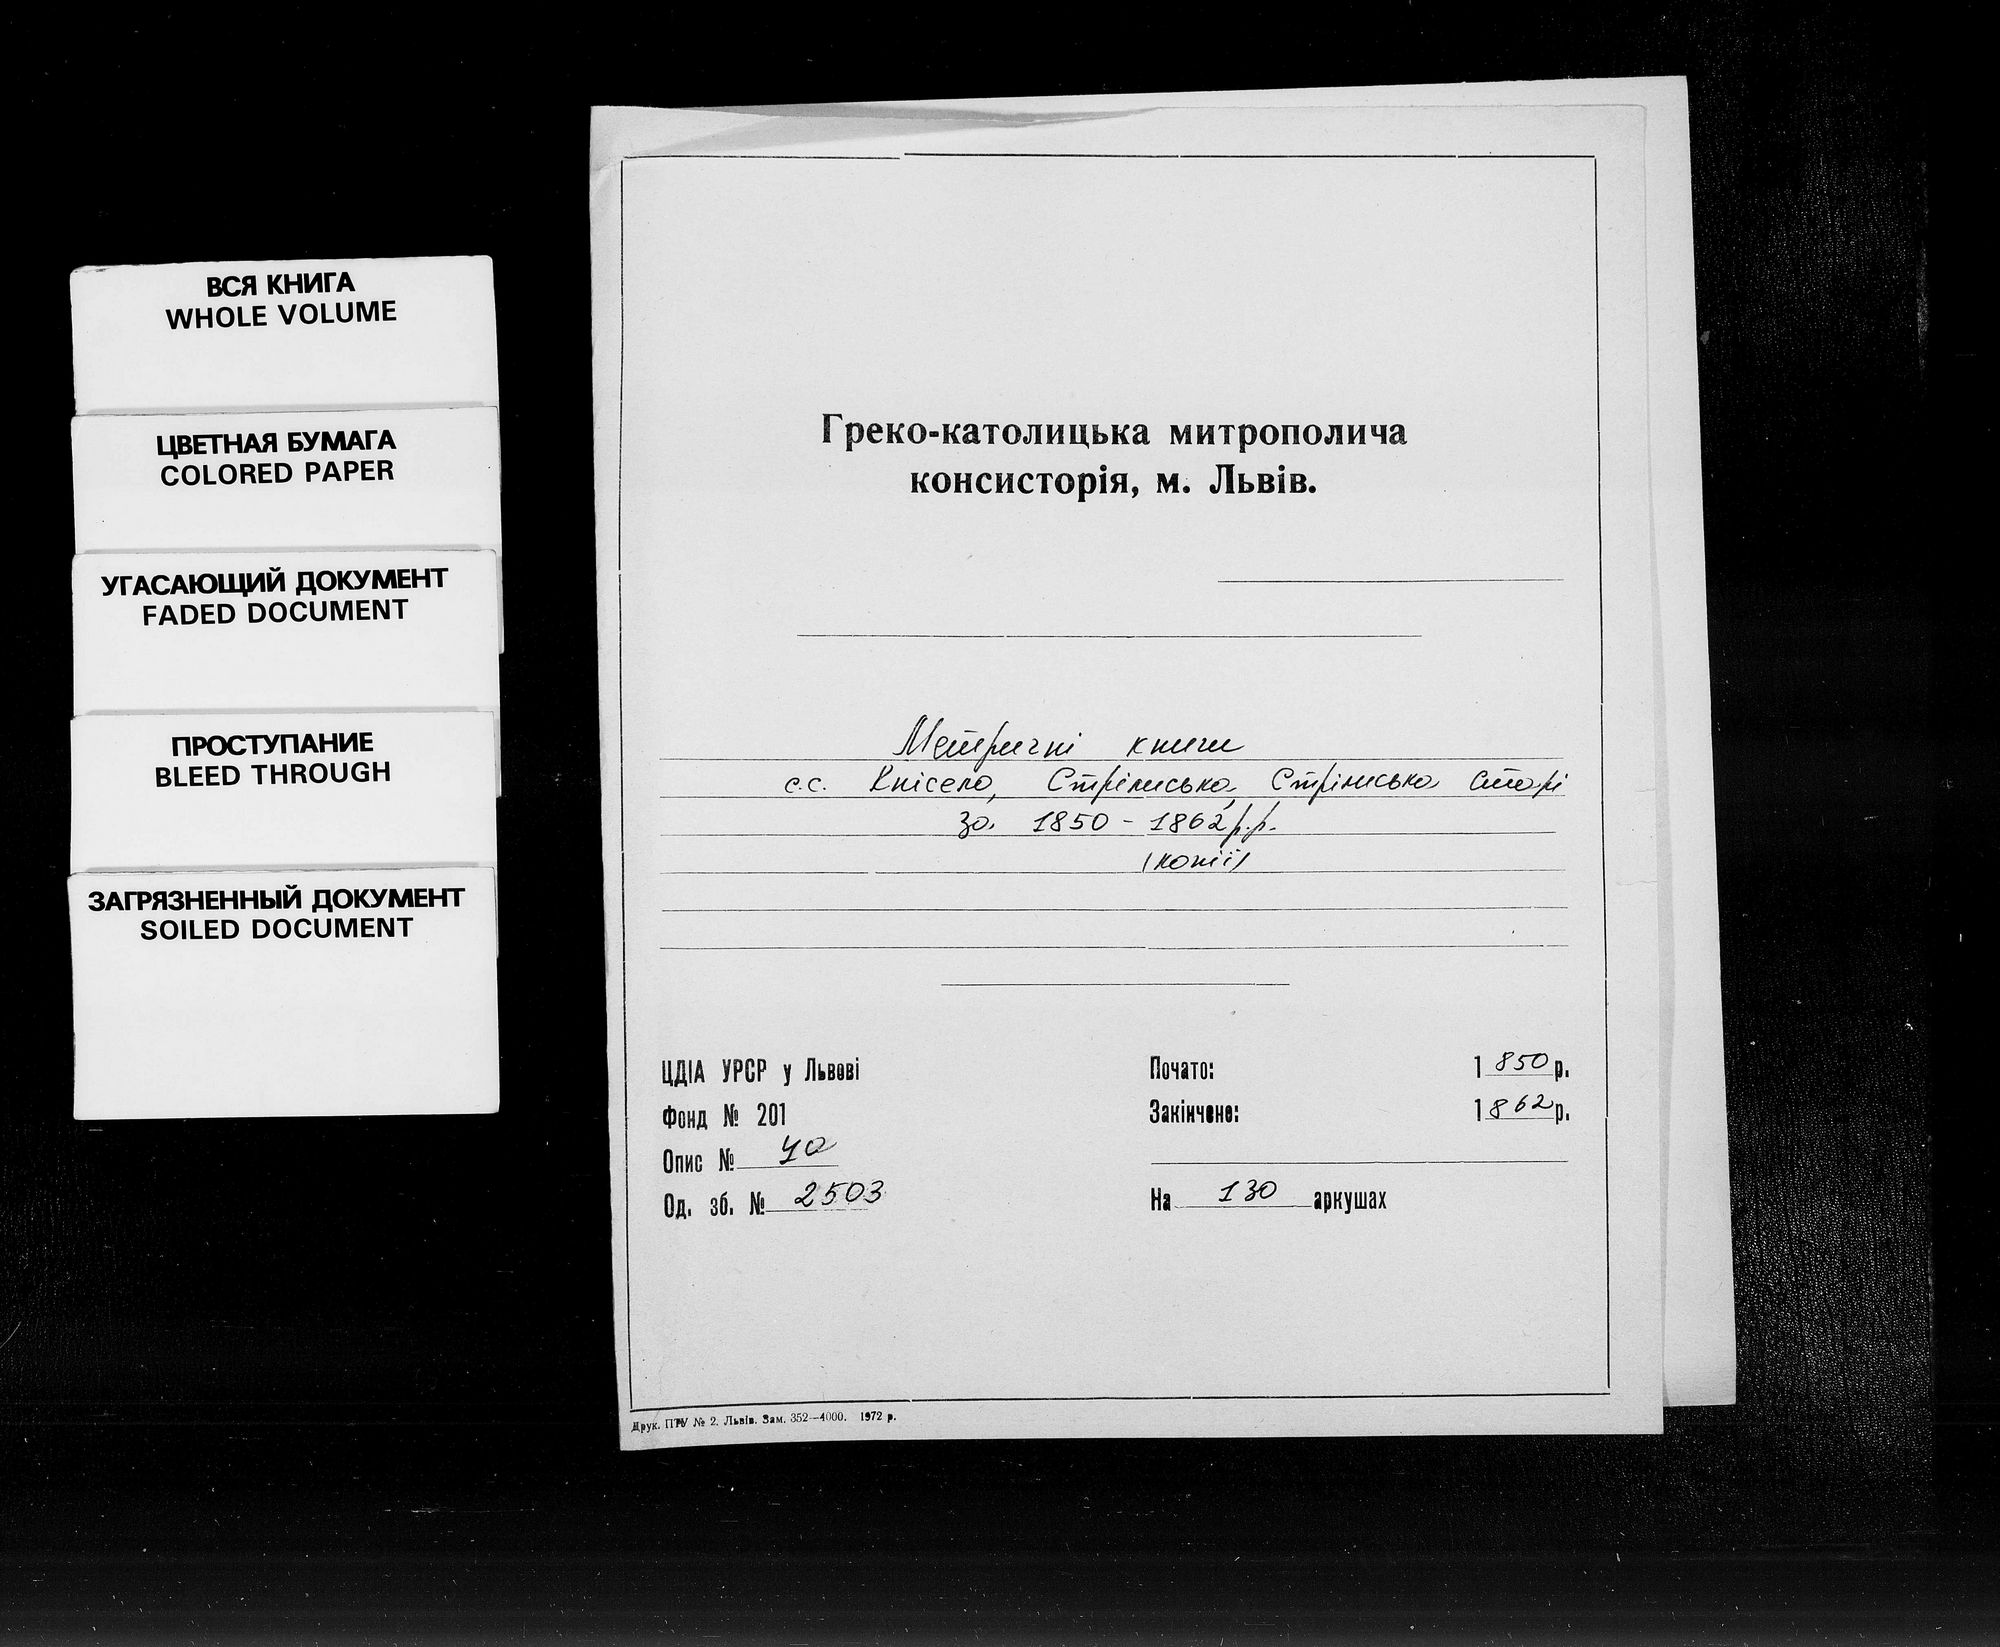 ВСЯ КНИГА
WHOLE VOLUME
ЦВЕТНАЯ БУМАГА
COLORED PAPER
УГАСАЮЩИЙ ДОКУМЕНТ
FADED DOCUMENT
ПРОСТУПАНИЕ
BLEED THROUGH
ЗАГРЯЗНЕННЫЙ ДОКУМЕНТ
SOILED DOCUMENT
Греко-католицька митрополича
консисторія, м. Львів.
Метричні книги
с.с. Кнісело, Стрілиська, Стрілиська старі
за 1850 - 1862 р.р.
(копії)
ЦДІА УРСР у Львові
Фонд № 201
Опис № 4а
Од. зб. № 2503
Почато: 1850 р.
Закінчено: 1862 р.
На 130 аркушах
Друк. ПТУ № 2. Львів. Зам. 352—4000. 1972 р.